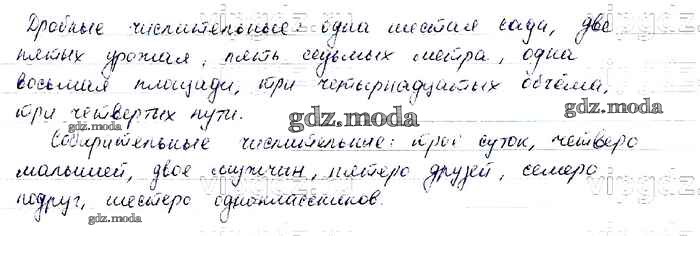 Дробные числительные: одна шестая сада, две
пятых урожая, пять седьмых метра, одна
восьмая площади, три четырнадцатых объёма,
три четвертых пути.
gdz.moda
gdz.moda
gdz.moda
Собирательные числительные: трое суток, четверо
малышей, двое мужчин, пятеро друзей, семеро
vipgdz
подруг, шестеро одноклассников.
gdz.moda
gdz.moda